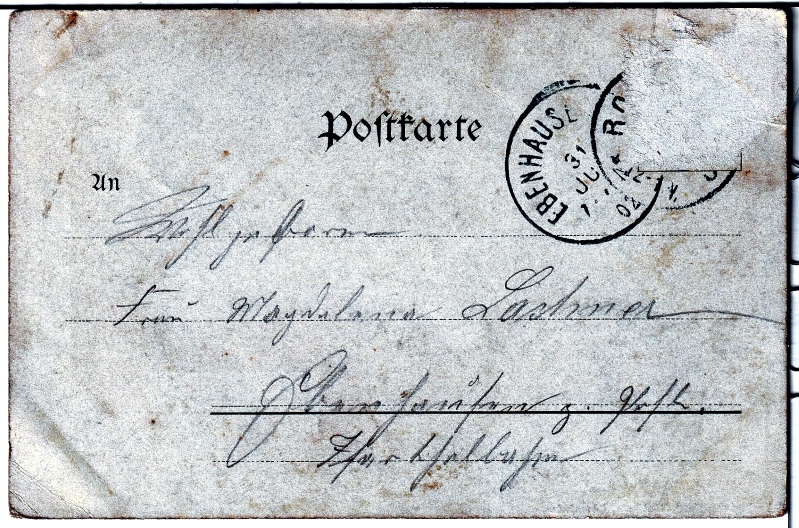 Postkarte
EBENHAUSE
31
JUL
02
RO
An
Wohlgeboren
Frau Magdalena Lachner
Ebenhausen z. Post.
Isarthalbahn